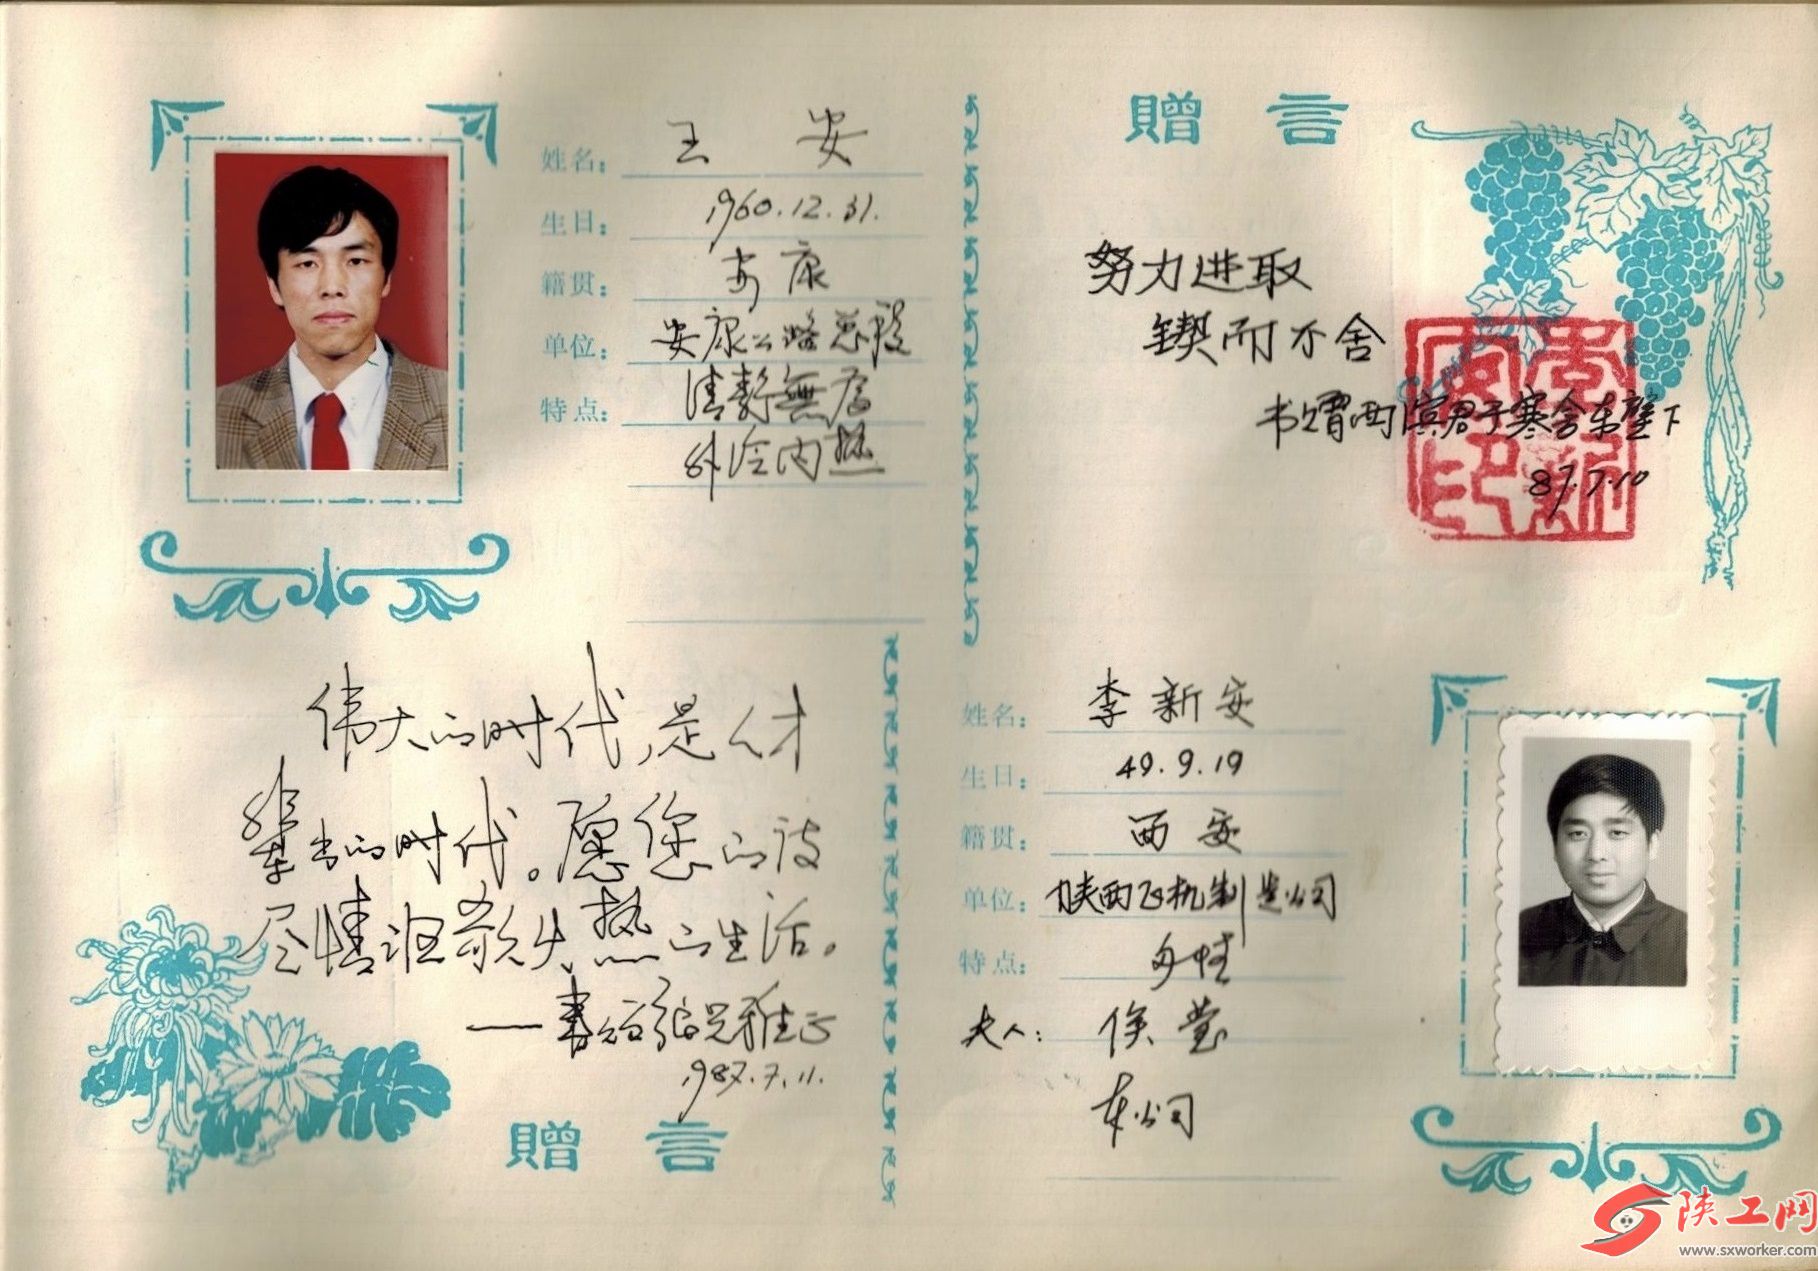 姓名： 王 安
生日： 1960.12.31.
籍贯： 安康
单位： 安康公路总段
特点： 清静無为
外冷内热
贈言
努力进取
锲而不舍
书赠西滨君于寒舍东壁下
87.7.10
伟大的时代，是人才
辈出的时代。愿您的诗
尽情讴歌火热的生活。
1987.7.11.
贈言
姓名： 李新安
生日： 49.9.19
籍贯： 西安
单位： 陕西飞机制造公司
特点：
夫人： 侯莹
本公司
陕工网
www.sxworker.com